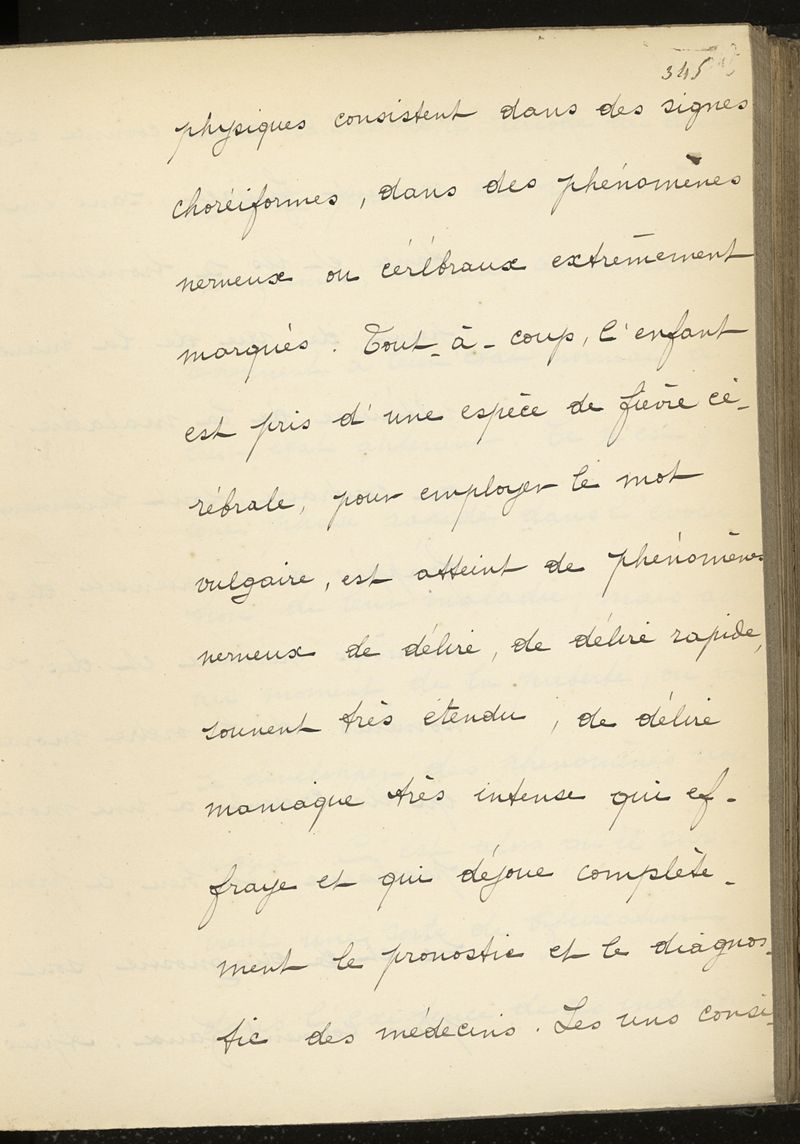 345
physiques consistent dans des signes
choréiformes, dans des phénomènes
nerveux ou cérébraux extrêmement
marqués. Tout-à-coup, l'enfant
est pris d'une espèce de fièvre cé-
rébrale, pour employer le mot
vulgaire, est atteint de phénomènes
nerveux de délire, de délire rapide,
souvent très étendu, de délire
maniaque très intense qui ef-
fraye et qui déjoue complète-
ment le pronostic et le diagnos-
tic des médecins. Les uns consi-